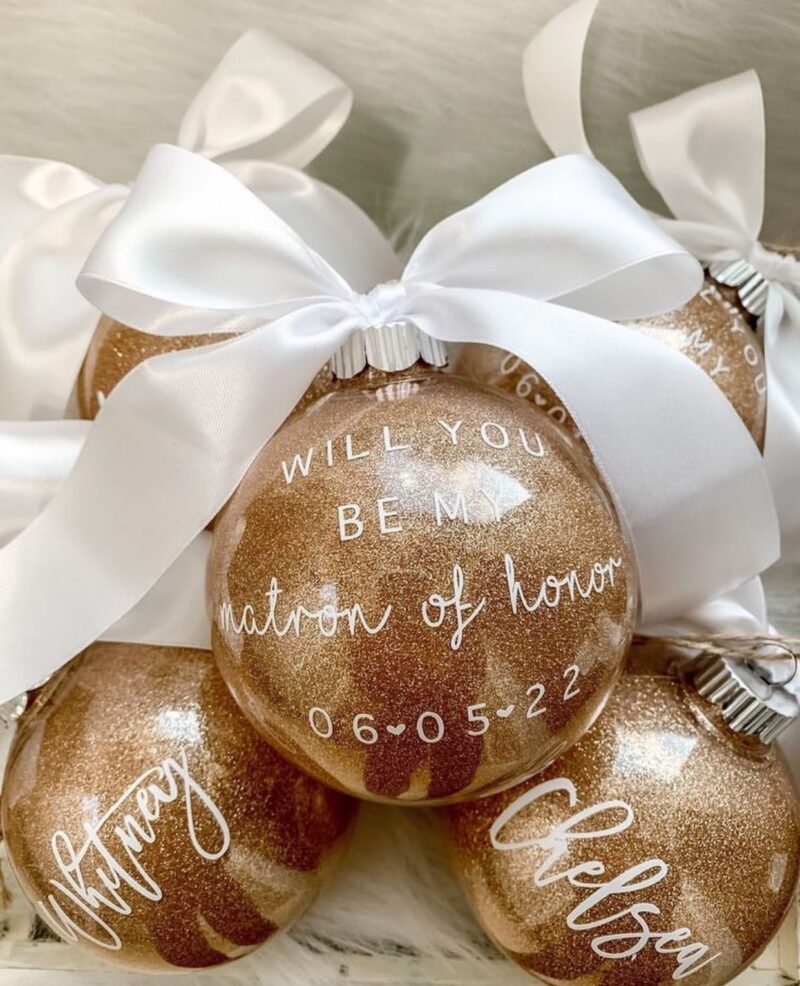 WILL YOU
BE MY
matron of honor
06♥05♥22
Whitney
Chelsea
YOU
MY
06♥0